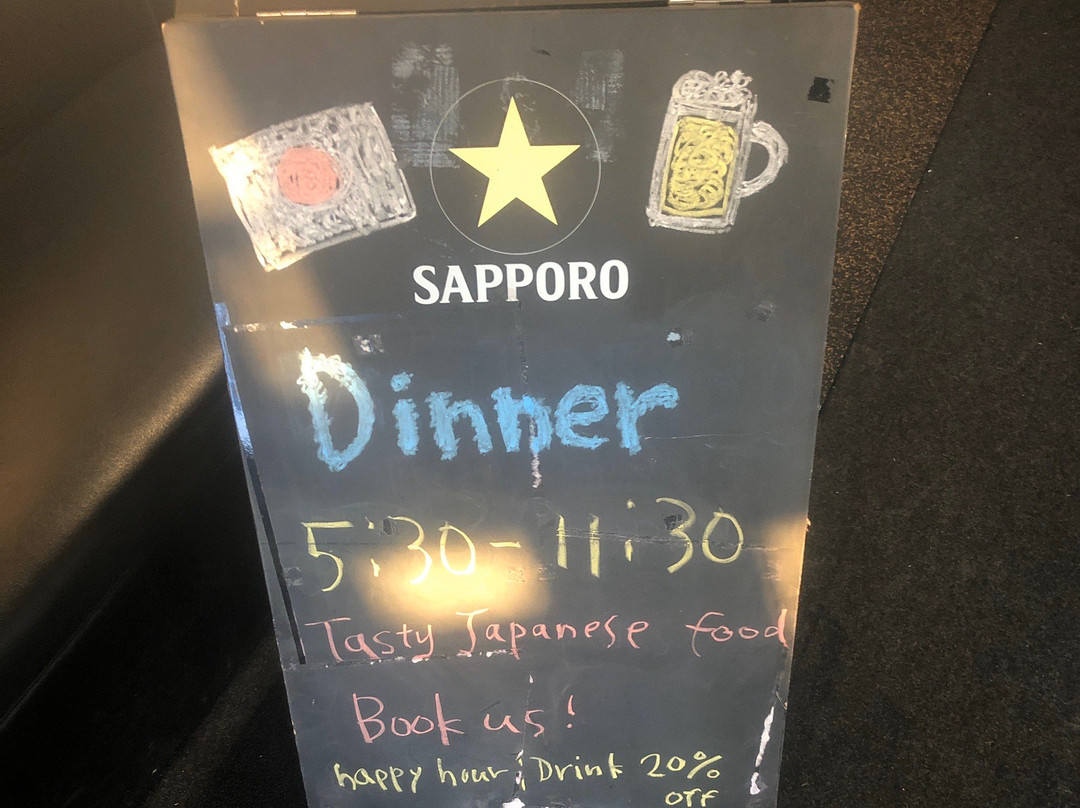 SAPPORO
Dinner
5:30 - 11:30
Tasty Japanese food
Book us!
happy hour Drink 20%
off